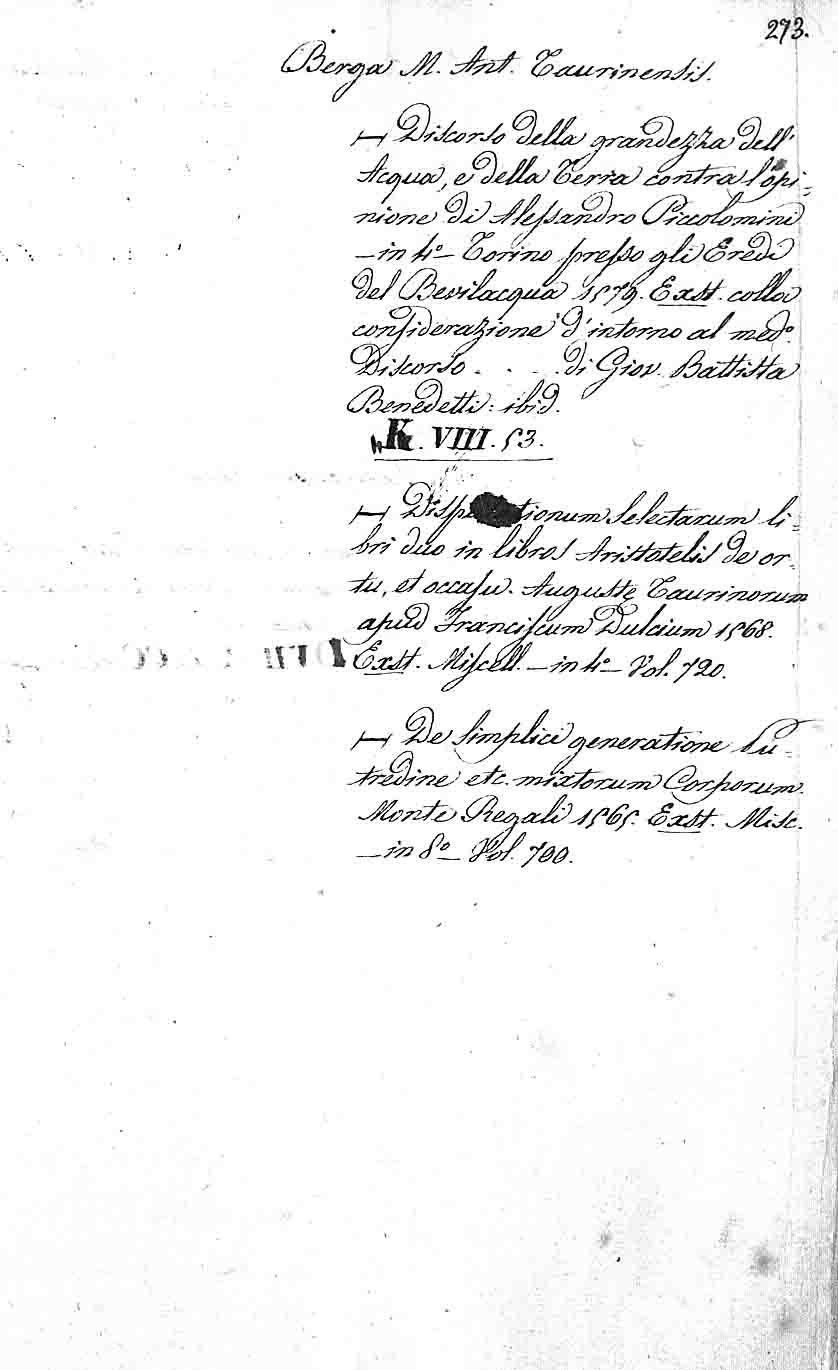 273.
Berga M. Ant. Taurinensis.
— Discorso della grandezza dell'
Acqua, e della Terra contra l'opi=
nione di Alessandro Piccolomini
—in 4º— Torino presso gli Eredi
del Bevilacqua 1579. Exst. colla
considerazione d'intorno al medº.
Discorso . . . . di Giov. Battista
Benedetti: ibid.
K. VIII. 53.
— tionum selectarum li=
bri duo in libros Aristotelis de or=
tu, et occasu. Auguste Taurinorum
apud Franciscum Dulcium 1568.
Exst. Miscell. —in 4º— Vol. 720.
— De simplici generatione Pu=
tredine etc. mixtorum Corporum.
Monte Regali 1565. Exst. Misc.
—in 8º— Vol. 700.